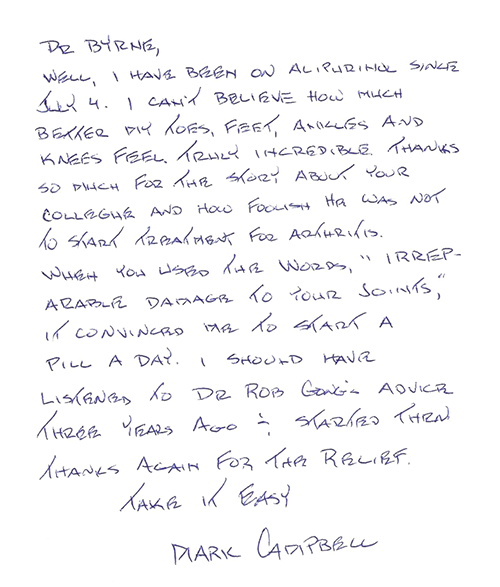 DR BYRNE,
WELL, I HAVE BEEN ON ALIPURINOL SINCE
JULY 4. I CAN'T BELIEVE HOW MUCH
BETTER MY TOES, FEET, ANKLES AND
KNEES FEEL. TRULY INCREDIBLE. THANKS
SO MUCH FOR THE STORY ABOUT YOUR
COLLEGUE AND HOW FOOLISH HE WAS NOT
TO START TREATMENT FOR ARTHRITIS.
WHEN YOU USED THE WORDS, "IRREP-
ARABLE DAMAGE TO YOUR JOINTS,"
IT CONVINCED ME TO START A
PILL A DAY. I SHOULD HAVE
LISTENED TO DR ROB GONG'S ADVICE
THREE YEARS AGO & STARTED THEN
THANKS AGAIN FOR THE RELIEF.
TAKE IT EASY
MARK CAMPBELL